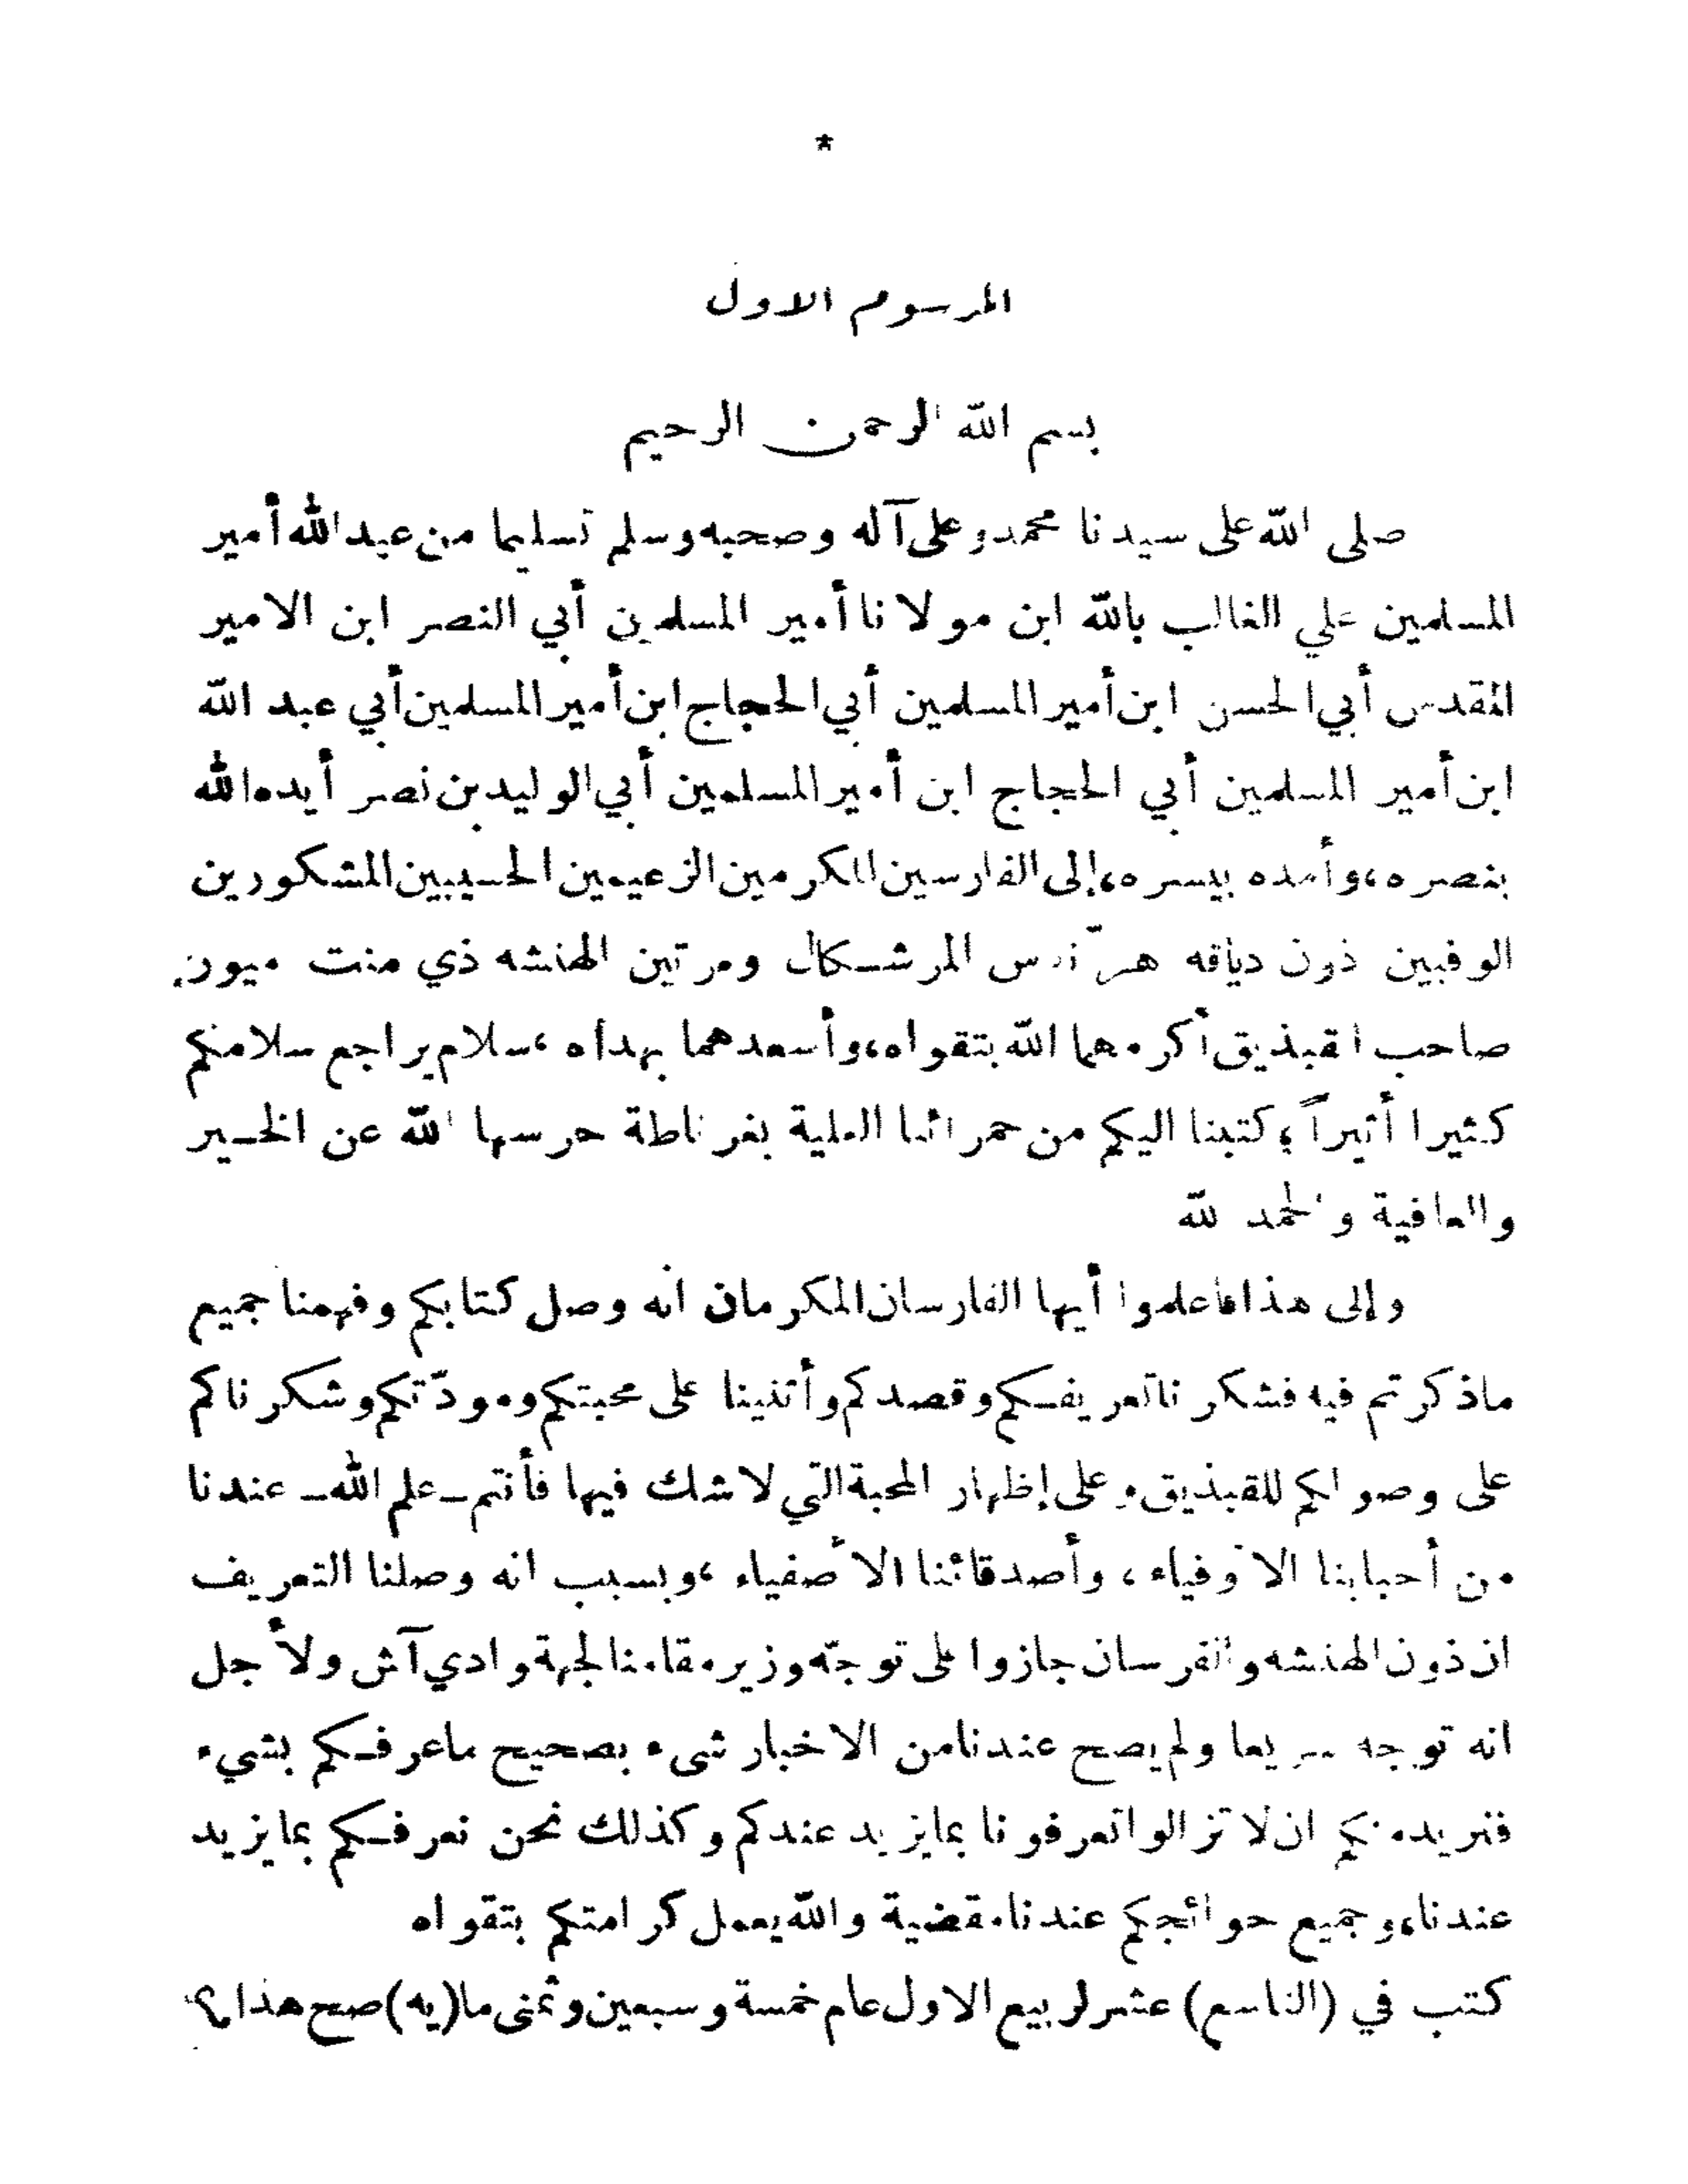 *
المرسوم الاول
بسم الله الرحمن الرحيم
صلى الله على سيدنا محمد وعلى آله وصحبه وسلم تسليما من عبد الله أمير
المسلمين علي الغالب بالله ابن مولانا أمير المسلمين أبي النصر ابن الامير
المقدس أبي الحسن ابن أمير المسلمين أبي الحجاج ابن أمير المسلمين أبي عبد الله
ابن أمير المسلمين أبي الحجاج ابن أمير المسلمين أبي الوليد بن نصر أيده الله
بنصره، وأمده بيسره، إلى الفارسين المكرمين الزعيمين الحسيبين المشكورين
الوفيين ذون دياقه هرّندس المرشكال ومرتين الهنشه ذي منت ميور.
صاحب القبذيق أكرمهما الله بتقواه، وأسعدهما بهداه، سلام يراجع سلامكم
كثيرا أثيراً، كتبنا اليكم من حمرائنا العلية بغرناطة حرسها الله عن الخير
والعافية والحمد لله
وإلى هذا فاعلموا أيها الفارسان المكرمان انه وصل كتابكم وفهمنا جميع
ماذكرتم فيه فشكرنا تعريفكم وقصدكم وأثنينا على محبتكم ومودّتكم وشكرناكم
على وصولكم للقبذيق وعلى إظهار المحبة التي لاشك فيها فأنتم ـ علم الله ـ عندنا
من أحبابنا الأوفياء، وأصدقائنا الأصفياء، وبسبب انه وصلنا التعريف
ان ذون الهنشه والفرسان جازوا على توجّه وزير مقامنا لجهة وادي آش ولأجل
انه توجه سريعا ولم يصح عندنا من الاخبار شىء بصحيح ماعرفكم بشيء
فنريد منكم ان لا تزالوا تعرفونا بمايزيد عندكم وكذلك نحن نعرفكم بمايزيد
عندنا، وجميع حوائجكم عندنا مقضية والله يعمل كرامتكم بتقواه
كتب في (التاسع) عشر لربيع الاول عام خمسة وسبعين وثمنى ما(يه) صح هذا